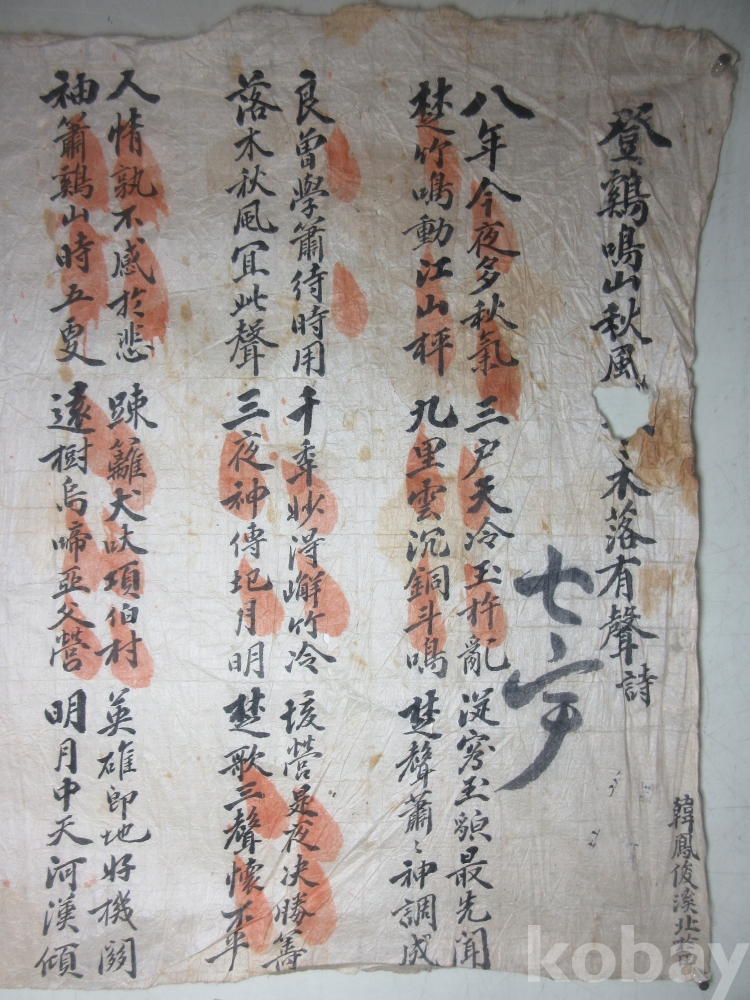 登鷄鳴山秋風〻木落有聲詩
韓鳳俊溪北
七
八年今夜多秋氣 三戶天冷玉杵亂 從玉貌最先聞
楚竹鳴動江山秤 九里雲沉銅斗鳴 楚聲蕭〻神調成
良曾學簫待時用 千年妙得嶰竹冷 垓營是夜決勝籌
落木秋風宜此聲 三夜神傳圯月明 楚歌三聲懷不平
人情孰不感於悲 踈籬犬吠項伯村 英雄即地好機關
袖簫鷄山時五更 遠樹烏啼亞父營 明月中天河漢傾
kobay